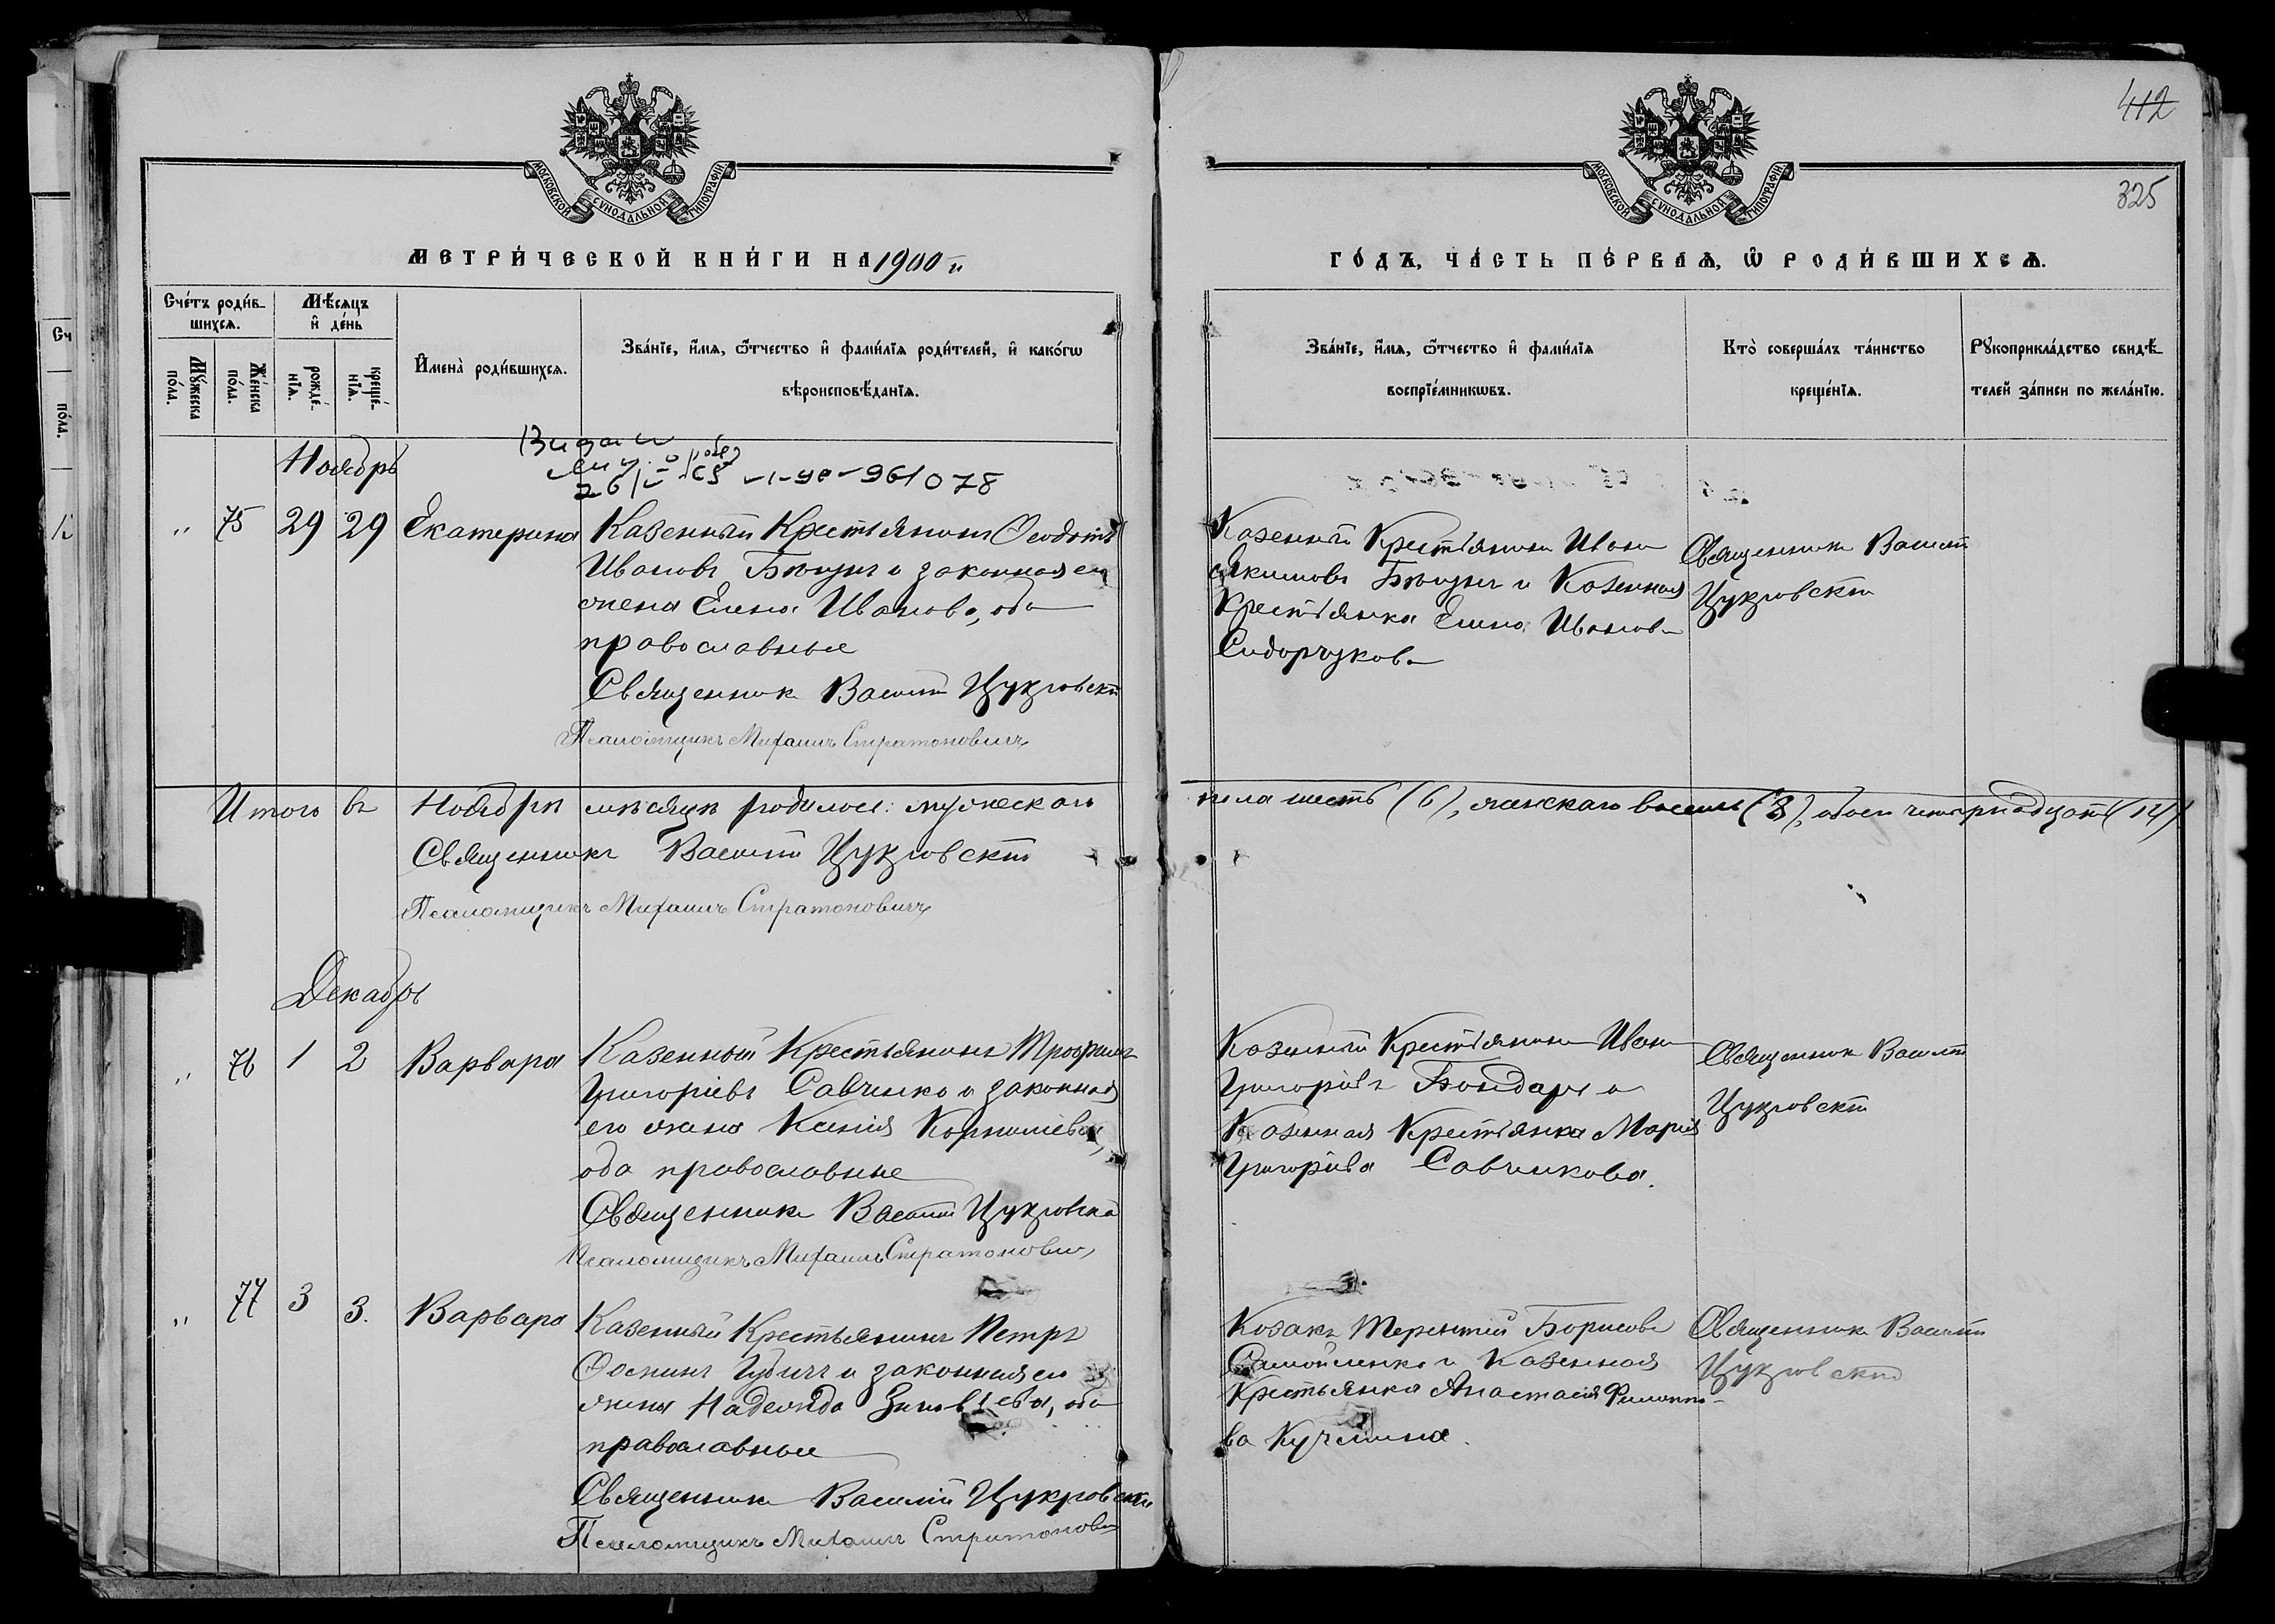 412
325
МОСКОВСКОЙ СѴНОДАЛЬНОЙ ТИПОГРАФІИ
МОСКОВСКОЙ СѴНОДАЛЬНОЙ ТИПОГРАФІИ
МЕТРИ́ЧЕСКОЙ КНИ́ГИ НА 1900 й
ГО́ДЪ, ЧА́СТЬ ПЕ́РВАѦ, Ѿ РОДИ́ВШИХСѦ.
Сче́тъ роди́в-
шихсѧ.
Мѣ́сяцъ
и҆ де́нь
Мꙋ́жеска
по́ла.
Же́нска
по́ла.
рожде́-
нїѧ.
креще́-
нїѧ.
И҆мена̀ роди́вшихсѧ.
Зва́нїе, и҆́мѧ, ѻ҆́тчество и҆ фами́лїѧ роди́телей, и҆ како́гѡ
вѣроисповѣ́данїѧ.
Зва́нїе, и҆́мѧ, ѻ҆́тчество и҆ фами́лїѧ
воспрїе́мникѡвъ.
Кто̀ соверша́лъ та́инство
креще́нїѧ.
Рꙋкоприкла́дство свидѣ́-
телей за́писи по жела́нїю.
Ноябрь
961078
" 75 29 29 Екатерина
Казенный Крестьянинъ Ѳеодотъ
Ивановъ и законная его
жена Елена Иванова, оба
православные
Священникъ Василій Цукровскій
Псаломщикъ Михаилъ Стратоновичъ
Казенный Крестьянинъ Иванъ
Якимовъ и Казенная
Крестьянка Елена Иванова
Сидорчукова
Священникъ Василій
Цукровскій
Итого въ Ноябрѣ мѣсяцѣ родилось: мужескаго
пола шесть (6), женскаго восемь (8), обоего четырнадцать (14)
Священникъ Василій Цукровскій
Псаломщикъ Михаилъ Стратоновичъ
Декабрь
" 76 1 2 Варвара
Казенный Крестьянинъ Трофимъ
Григоріевъ Савченко и законная
его жена Ксенія Корниліева,
оба православные
Священникъ Василій Цукровскій
Псаломщикъ Михаилъ Стратоновичъ
Казенный Крестьянинъ Иванъ
Григоріевъ Бондарь и
Казенная Крестьянка Марія
Григоріева Савченкова.
Священникъ Василій
Цукровскій
" 77 3 3. Варвара
Казенный Крестьянинъ Петръ
и законная его
жена Надежда Зиновіева, оба
православные
Священникъ Василій Цукровскій
Псаломщикъ Михаилъ Стратоновичъ
Козакъ Терентій Борисовъ
Самойленко и Казенная
Крестьянка Анастасія Филиппо-
ва
Священникъ Василій
Цукровскій